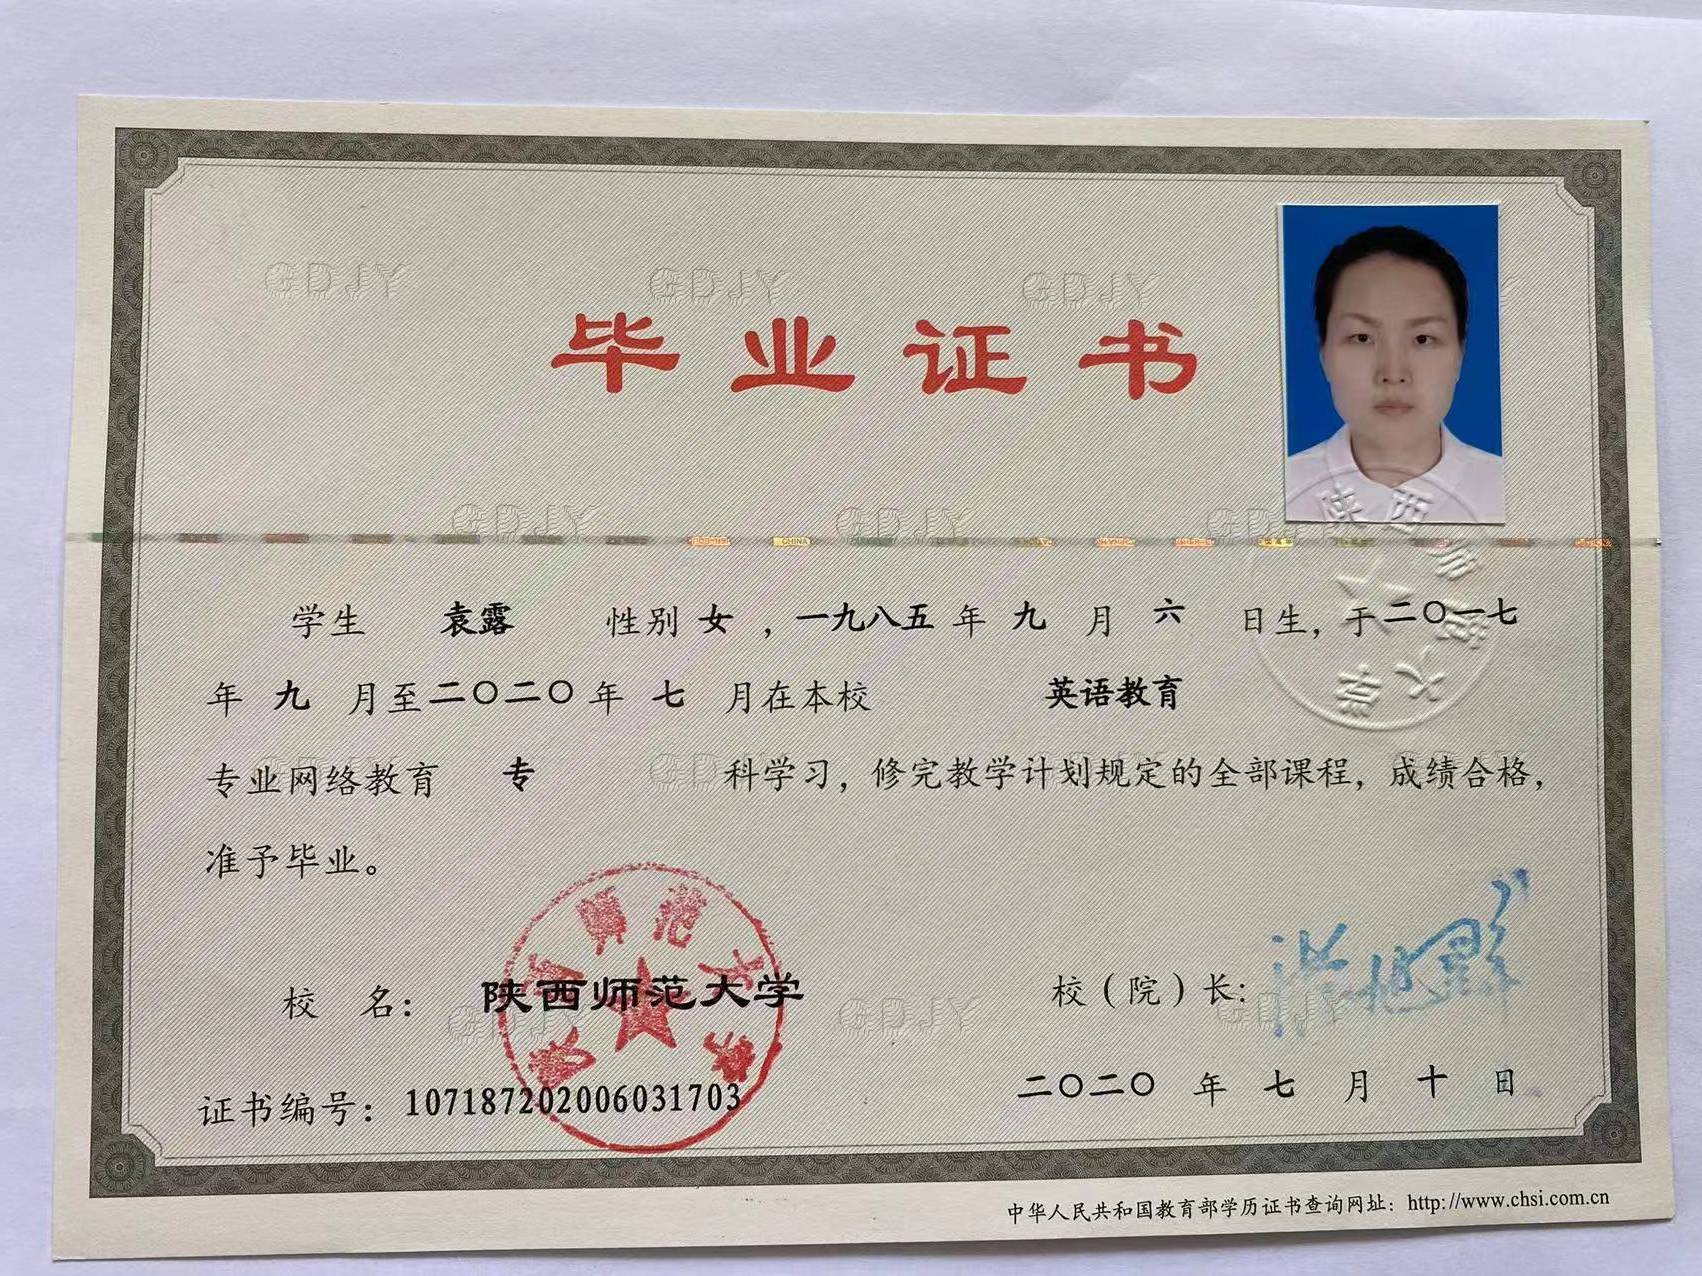 毕业证书
学生 袁露 性别 女 ，一九八五 年 九 月 六 日生，于二〇一七
年 九 月至二〇二〇年 七 月在本校 英语教育
专业网络教育 专 科学习，修完教学计划规定的全部课程，成绩合格，
准予毕业。
校 名： 陕西师范大学 校（院）长：
证书编号： 107187202006031703 二〇二〇 年 七 月 十 日
中华人民共和国教育部学历证书查询网址： http://www.chsi.com.cn
GDJY GDJY GDJY
GDJY GDJY GDJY
GDJY GDJY GDJY GDJY
GDJY GDJY GDJY
CHINA
陕西师范大学